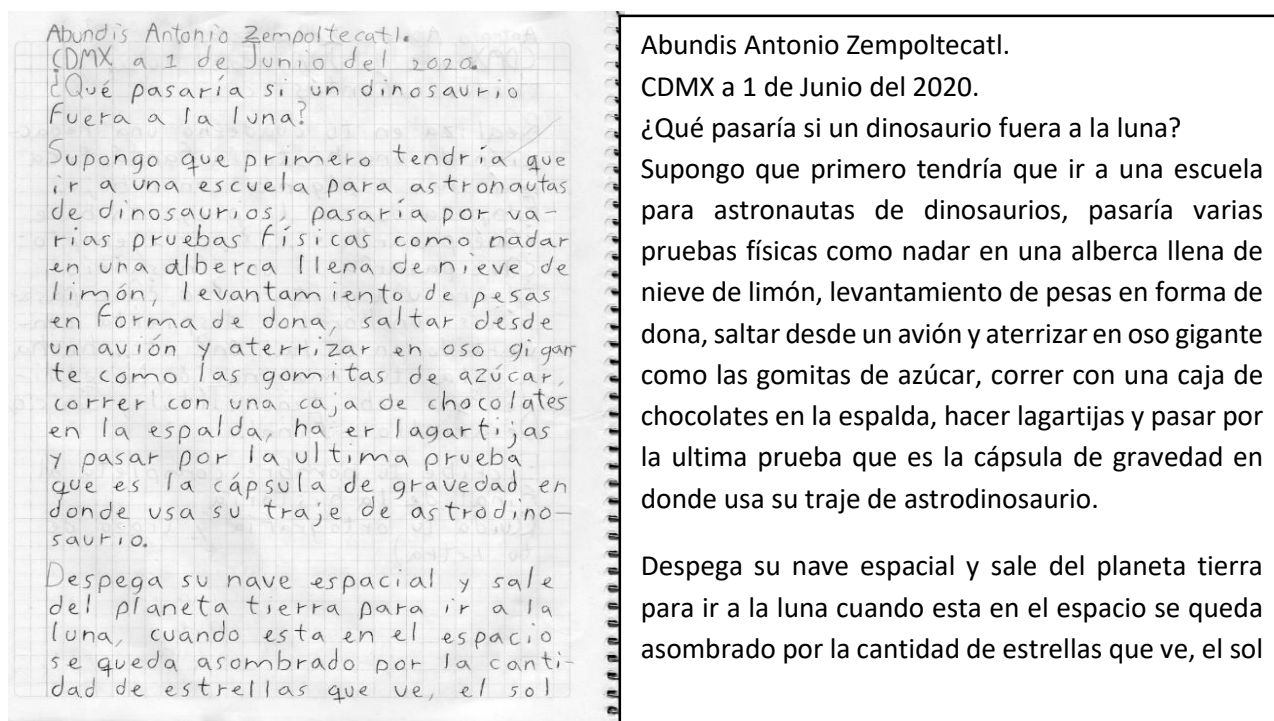 Abundis Antonio Zempoltecatl.
CDMX a 1 de Junio del 2020.
¿Qué pasaría si un dinosaurio
fuera a la luna?
Supongo que primero tendría que
ir a una escuela para astronautas
de dinosaurios, pasaría por va-
rias pruebas físicas como nadar
en una alberca llena de nieve de
limón, levantamiento de pesas
en forma de dona, saltar desde
un avión y aterrizar en oso gigan
te como las gomitas de azúcar,
correr con una caja de chocolates
en la espalda, ha er lagartijas
y pasar por la ultima prueba
que es la cápsula de gravedad en
donde usa su traje de astrodino-
saurio.
Despega su nave espacial y sale
del planeta tierra para ir a la
luna, cuándo esta en el espacio
se queda asombrado por la canti-
dad de estrellas que ve, el sol
Abundis Antonio Zempoltecatl.
CDMX a 1 de Junio del 2020.
¿Qué pasaría si un dinosaurio fuera a la luna?
Supongo que primero tendría que ir a una escuela
para astronautas de dinosaurios, pasaría varias
pruebas físicas como nadar en una alberca llena de
nieve de limón, levantamiento de pesas en forma de
dona, saltar desde un avión y aterrizar en oso gigante
como las gomitas de azúcar, correr con una caja de
chocolates en la espalda, hacer lagartijas y pasar por
la ultima prueba que es la cápsula de gravedad en
donde usa su traje de astrodinosaurio.
Despega su nave espacial y sale del planeta tierra
para ir a la luna cuando esta en el espacio se queda
asombrado por la cantidad de estrellas que ve, el sol